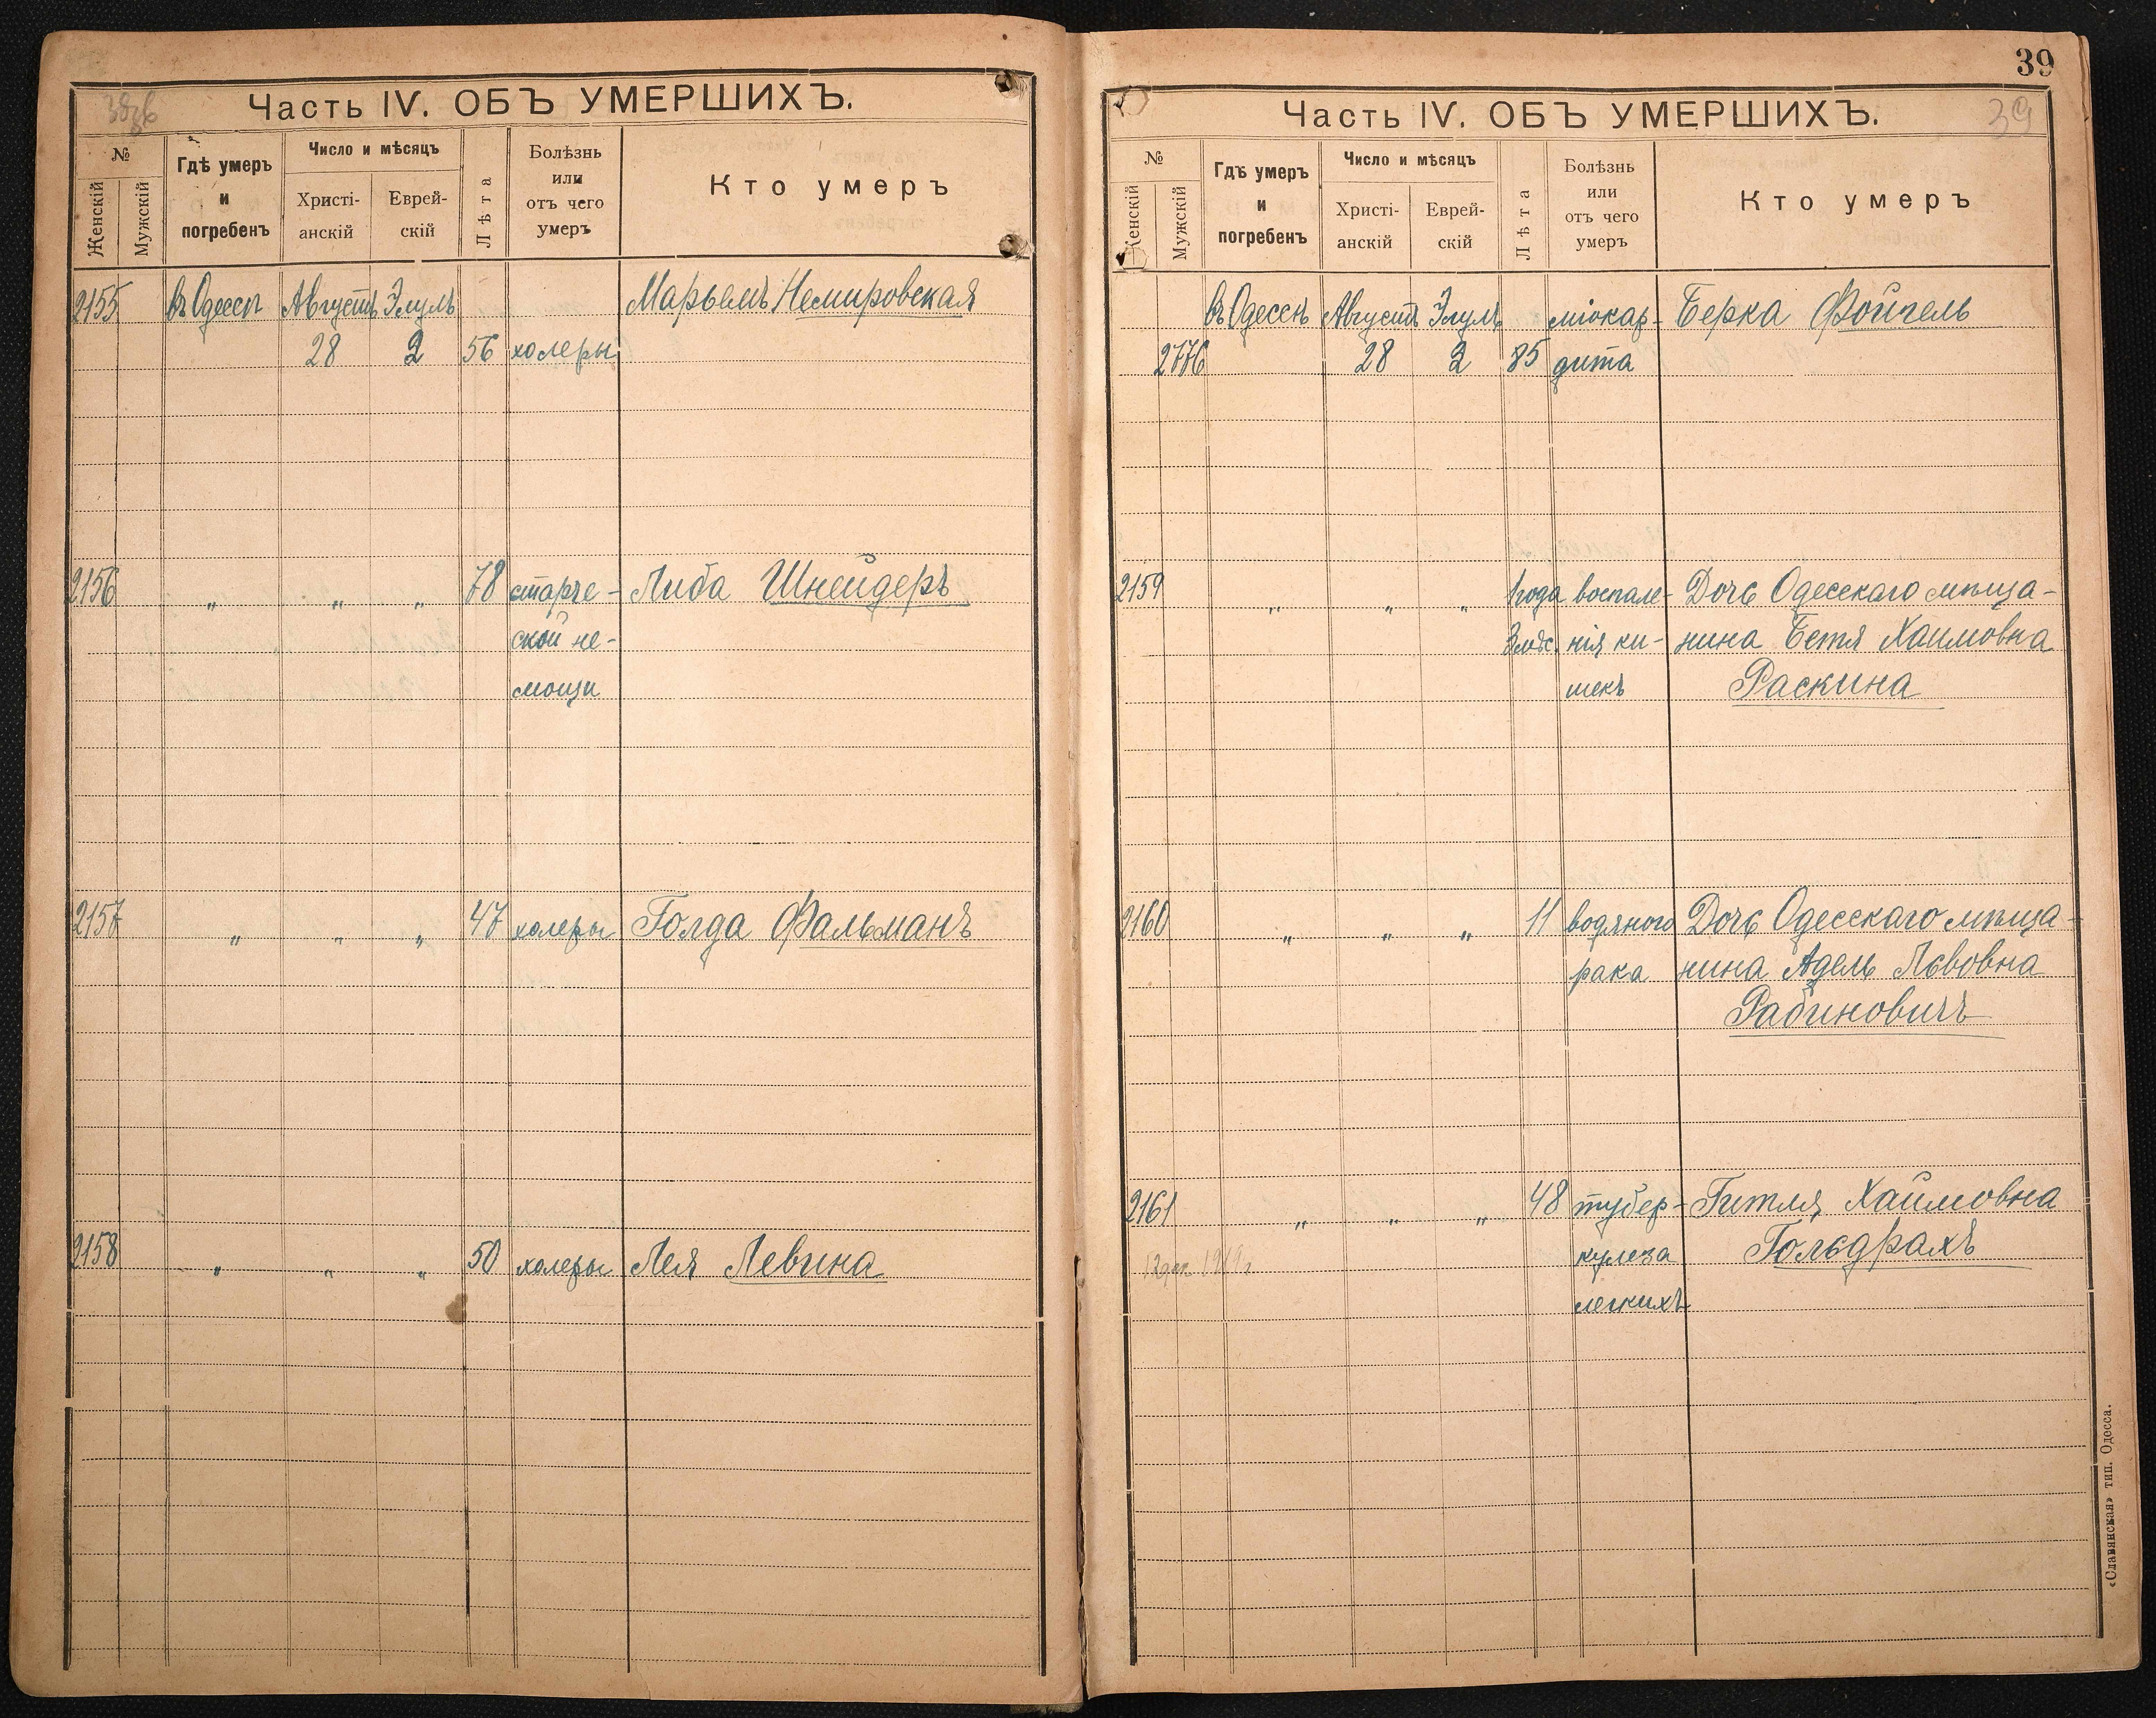 Часть IV. ОБЪ УМЕРШИХЪ.
№
Женскій
Мужскій
Гдѣ умеръ
и
погребенъ
Число и мѣсяцъ
Христі-
анскій
Еврей-
скій
Лѣта
Болѣзнь
или
отъ чего
умеръ
Кто умеръ
2155 въ Одессѣ Августъ Элулъ Марьямъ Немировская
28 2 56 холеры
2156 " " " 78 старче- Либа Шнейдеръ
ской не-
мощи
2157 " " " 47 холеры Голда Фальманъ
2158 " " " 50 холеры Лея Левина
39
Часть IV. ОБЪ УМЕРШИХЪ. 39
№
Женскій
Мужскій
Гдѣ умеръ
и
погребенъ
Число и мѣсяцъ
Христі-
анскій
Еврей-
скій
Лѣта
Болѣзнь
или
отъ чего
умеръ
Кто умеръ
въ Одессѣ Августъ Элулъ міокар- Берка Фойгель
2776 28 2 85 дита
2159 " " " 1 года воспале- Дочь Одесскаго мѣща-
3 мѣс. нія ки- нина Бетя Хаимовна
шекъ Раскина
2160 " " " 11 водяного Дочь Одесскаго мѣща-
рака нина Адель Львовна
Рабиновичъ
2161 " " " 48 тубер- Гитля Хаимовна
кулеза Гольдрахъ
легкихъ
«Славянская» тип. Одесса.